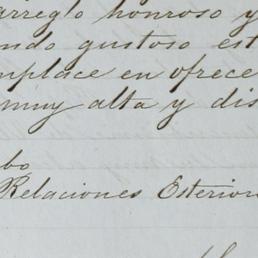 arreglo honroso y
ndo gustoso est
mplace en ofrece
muy alta y dis
bo
Relaciones Exterior